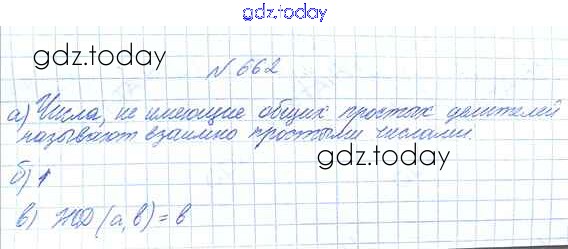 gdz.today
gdz.today
№ 662
а) Числа, не имеющие общих простых делителей
называют взаимно простыми числами.
gdz.today
б) 1
в) НОД (a, b) = b